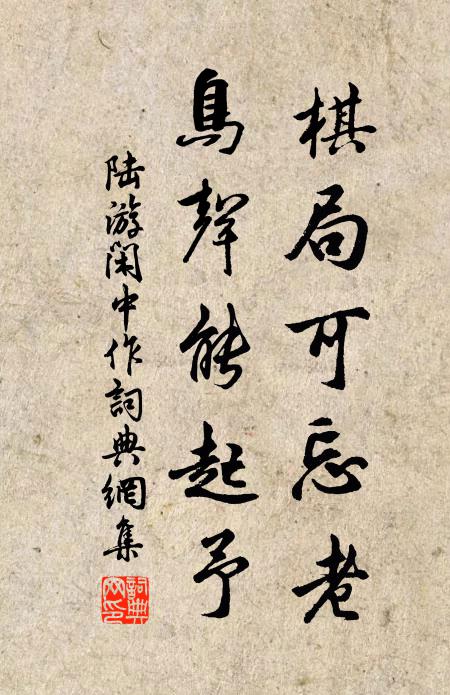 棋局可忘老
鳥聲能起予
陸游閑中作詞典網集
詞典網印